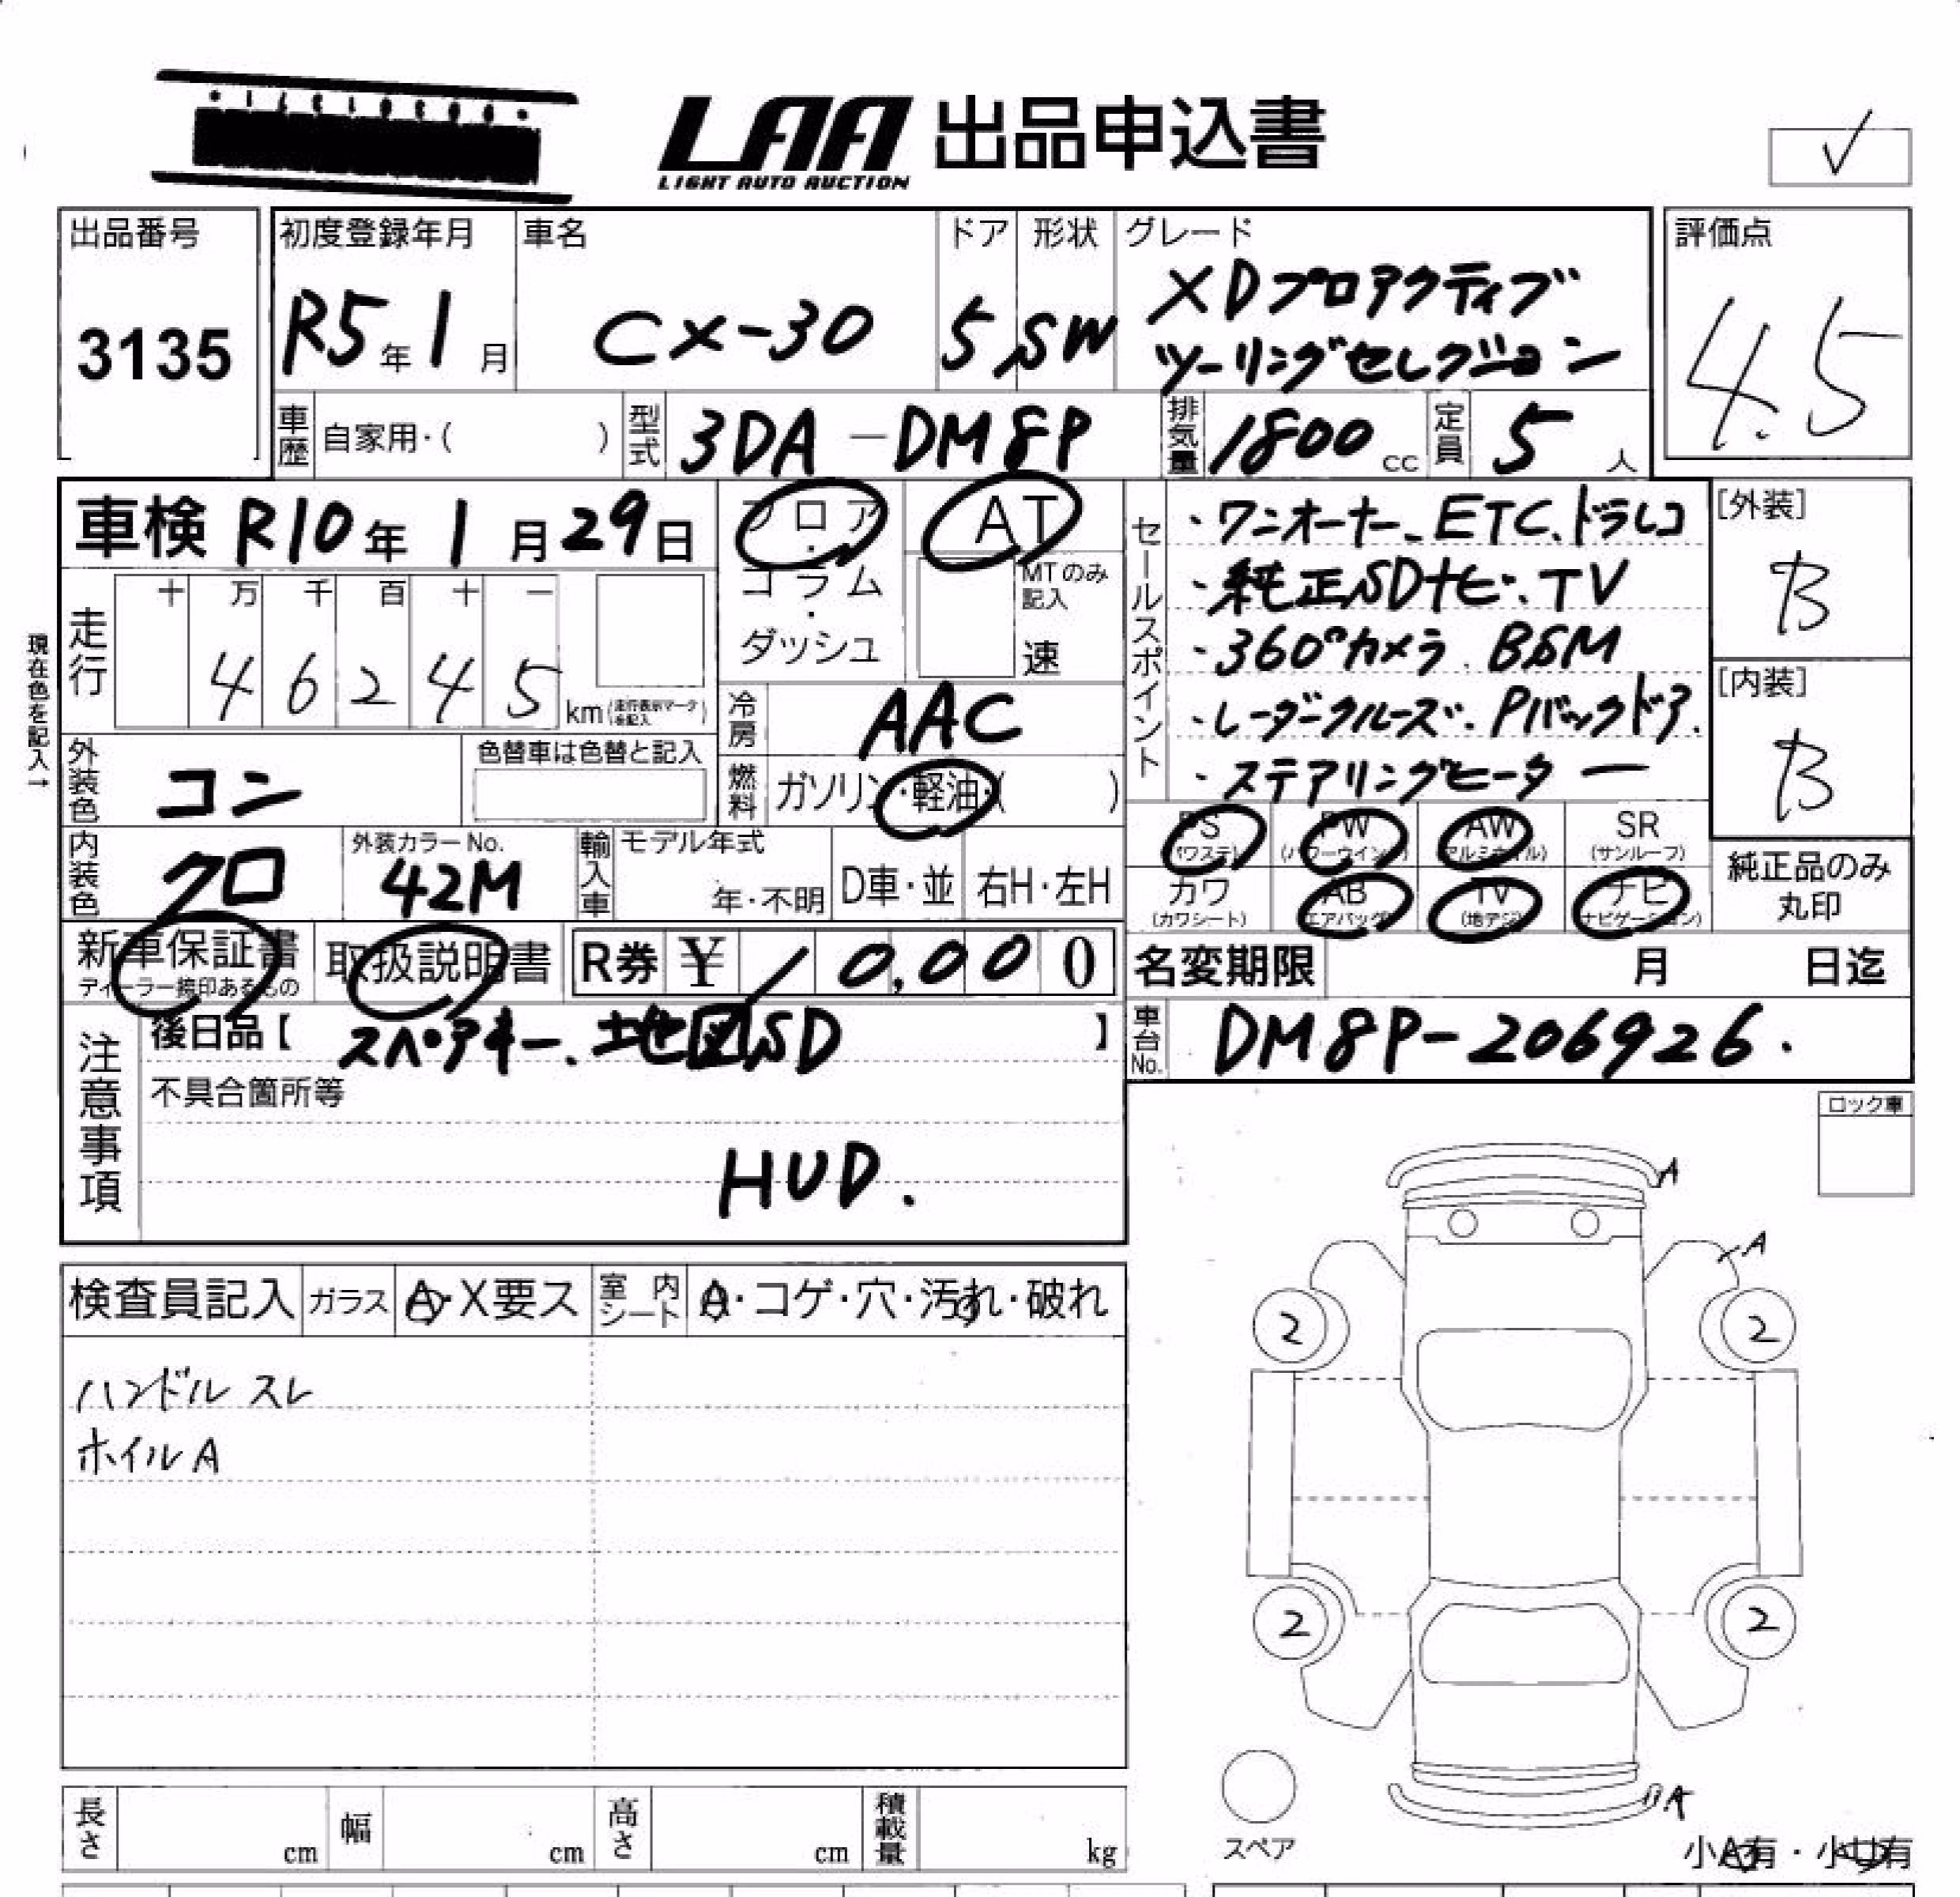 LAA 出品申込書
LIGHT AUTO AUCTION
出品番号
3135
初度登録年月
R5年1月
車名
CX-30
ドア
5
形状
SW
グレード
XDプロアクティブ
ツーリングセレクション
評価点
4.5
車歴 自家用・( )
型式 3DA-DM8P
排気量 1800cc
定員 5人
車検 R10年1月29日
フロア・コラム・ダッシュ
AT
MTのみ記入
速
セールスポイント
・ワンオーナー、ETC、ドラレコ
・純正SDナビ・TV
・360°カメラ、BSM
・レーダークルーズ、Pバックドア、
・ステアリングヒーター
[外装]
B
[内装]
B
現在色を記入→
走行
十 万 千 百 十 一
4 6 2 4 5 km(走行表示マークを記入)
冷房 AAC
外装色 コン
色替車は色替と記入
燃料 ガソリン・軽油・( )
内装色 クロ
外装カラーNo.
42M
輸入車
モデル年式
年・不明
D車・並
右H・左H
PS
(パワステ)
PW
(パワーウインド)
AW
(アルミホイル)
SR
(サンルーフ)
カワ
(カワシート)
AB
(エアバッグ)
TV
(地デジ)
ナビ
(ナビゲーション)
純正品のみ
丸印
新車保証書
ディーラー捺印あるもの
取扱説明書
R券 ¥ 10,000
名変期限 月 日迄
注意事項
後日品【 スペアキー、地図SD 】
不具合箇所等
HUD.
車台No. DM8P-206926.
ロック車
A
A
検査員記入
ガラス A・X要ス
室内シート A・コゲ・穴・汚れ・破れ
ハンドル スレ
ホイル A
2 2
2 2
A
スペア
小A有・小U有
長さ cm
幅 cm
高さ cm
積載量 kg